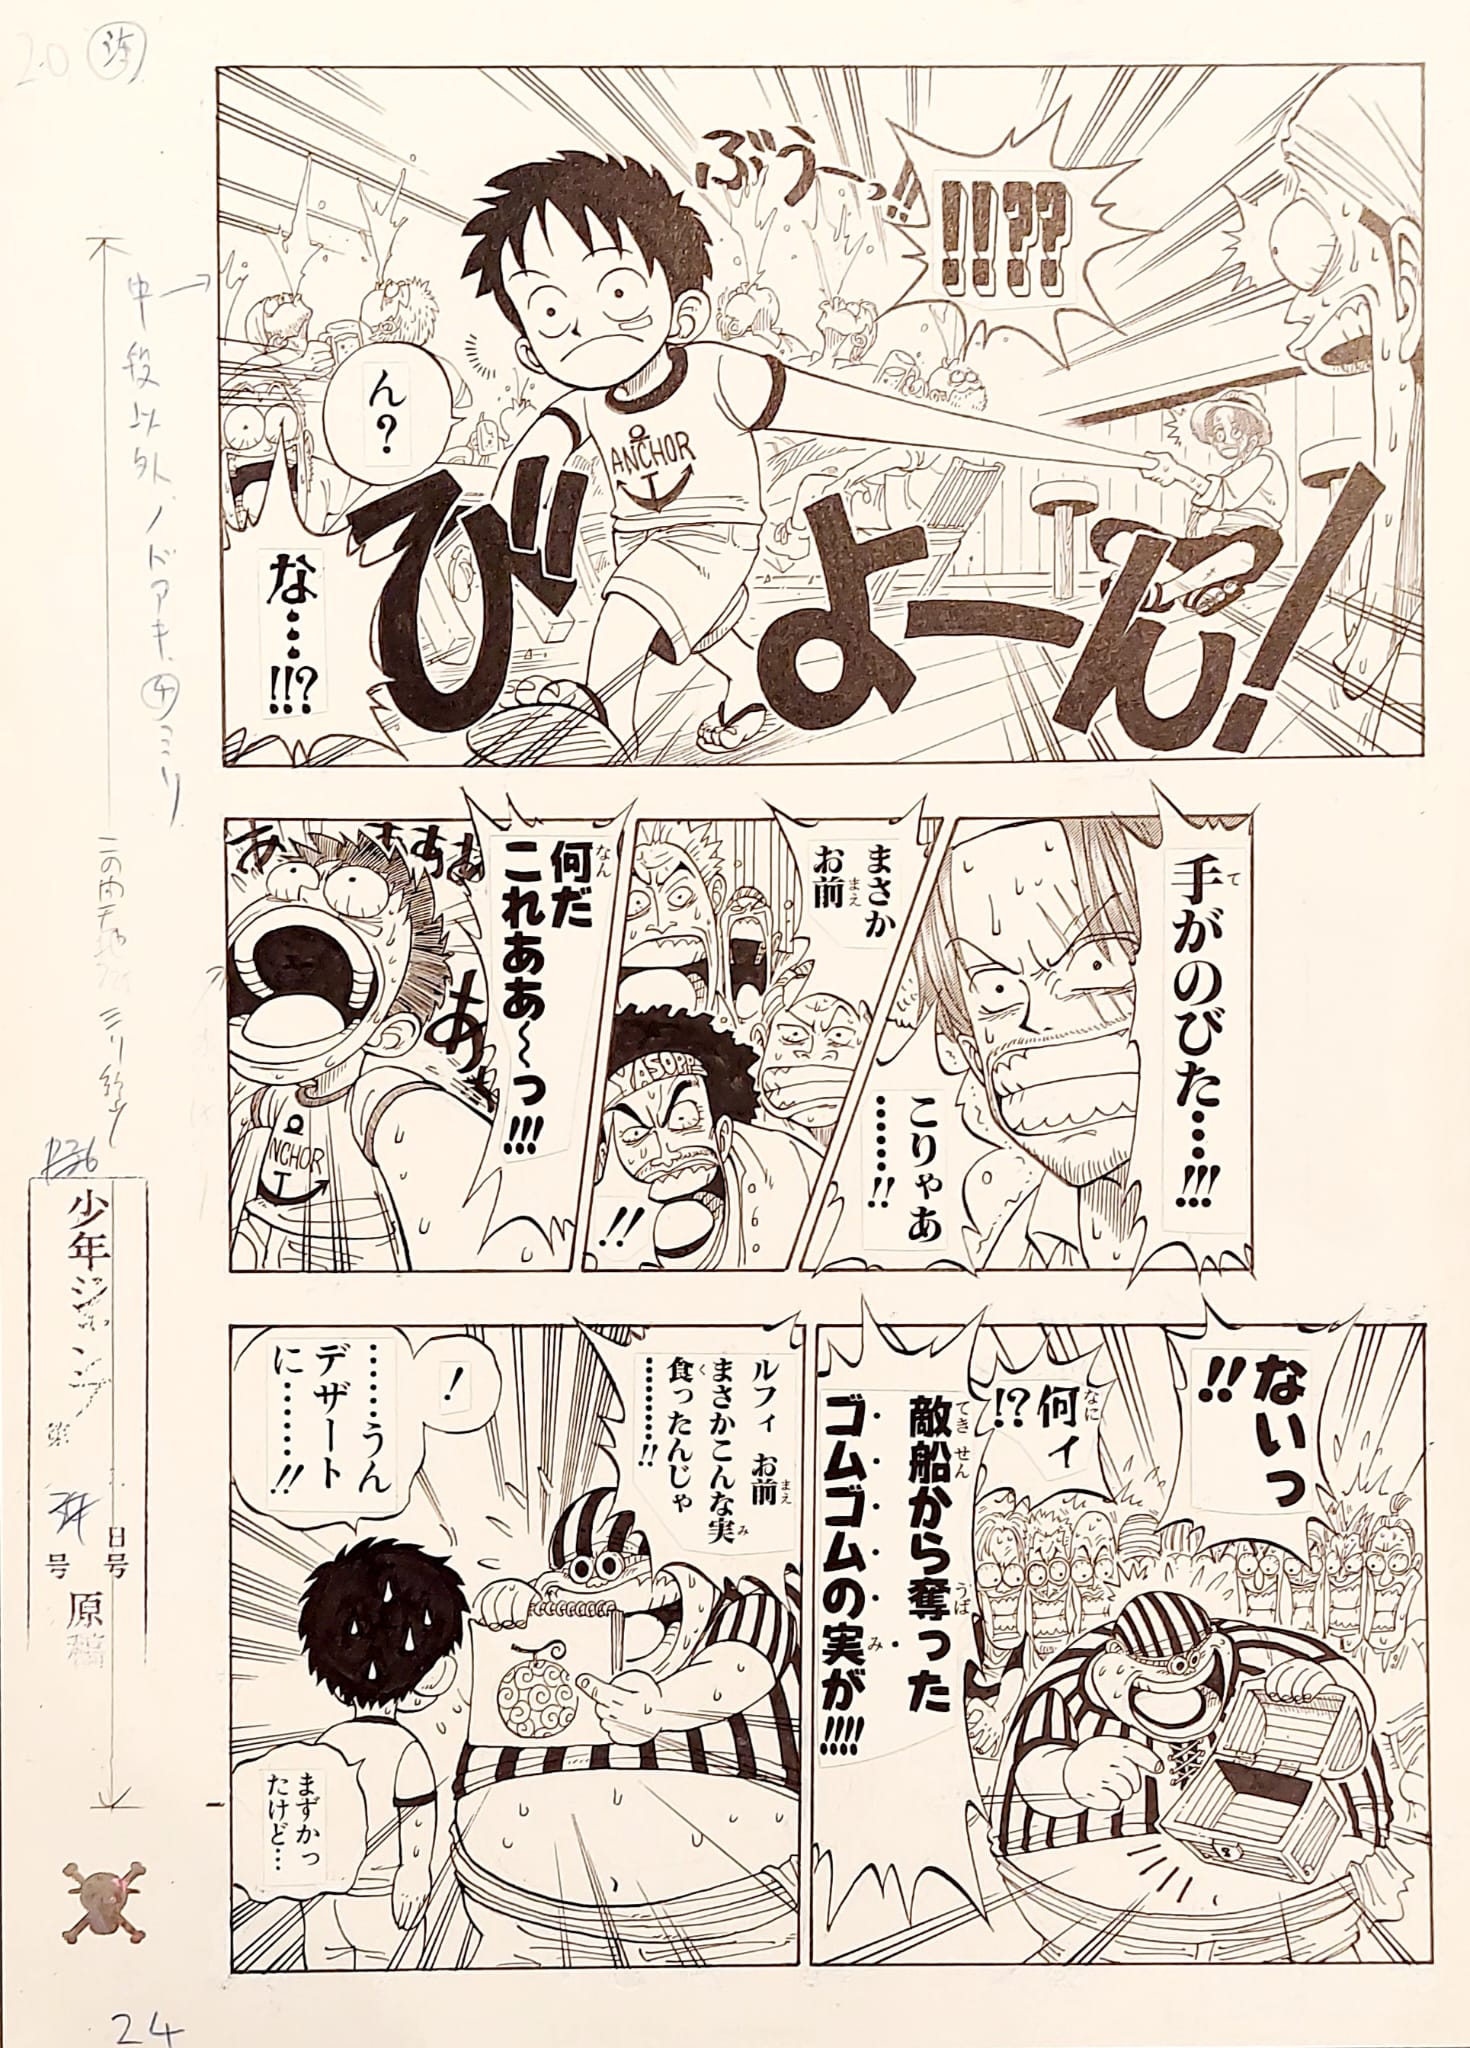 20
ぶうーっ!!
!!??
ん?
ANCHOR
びよーん!
な……!!?
手がのびた……!!!
こりゃあ
………!!
まさか
お前
YASOPP
!!
何だ
これああ〜〜っ!!!
あ
ああああ
あ
NCHOR
ないっ
!!
何ィ
!?
敵船から奪った
ゴムゴムの実が!!!!
ルフィ お前
まさかこんな実
食ったんじゃ
………!!
!
……うん
デザート
に……!!
まずかっ
たけど…
中段以外ノドアキ④ミリ
P36
少年ジャンプ
第
号
日号
原稿
24